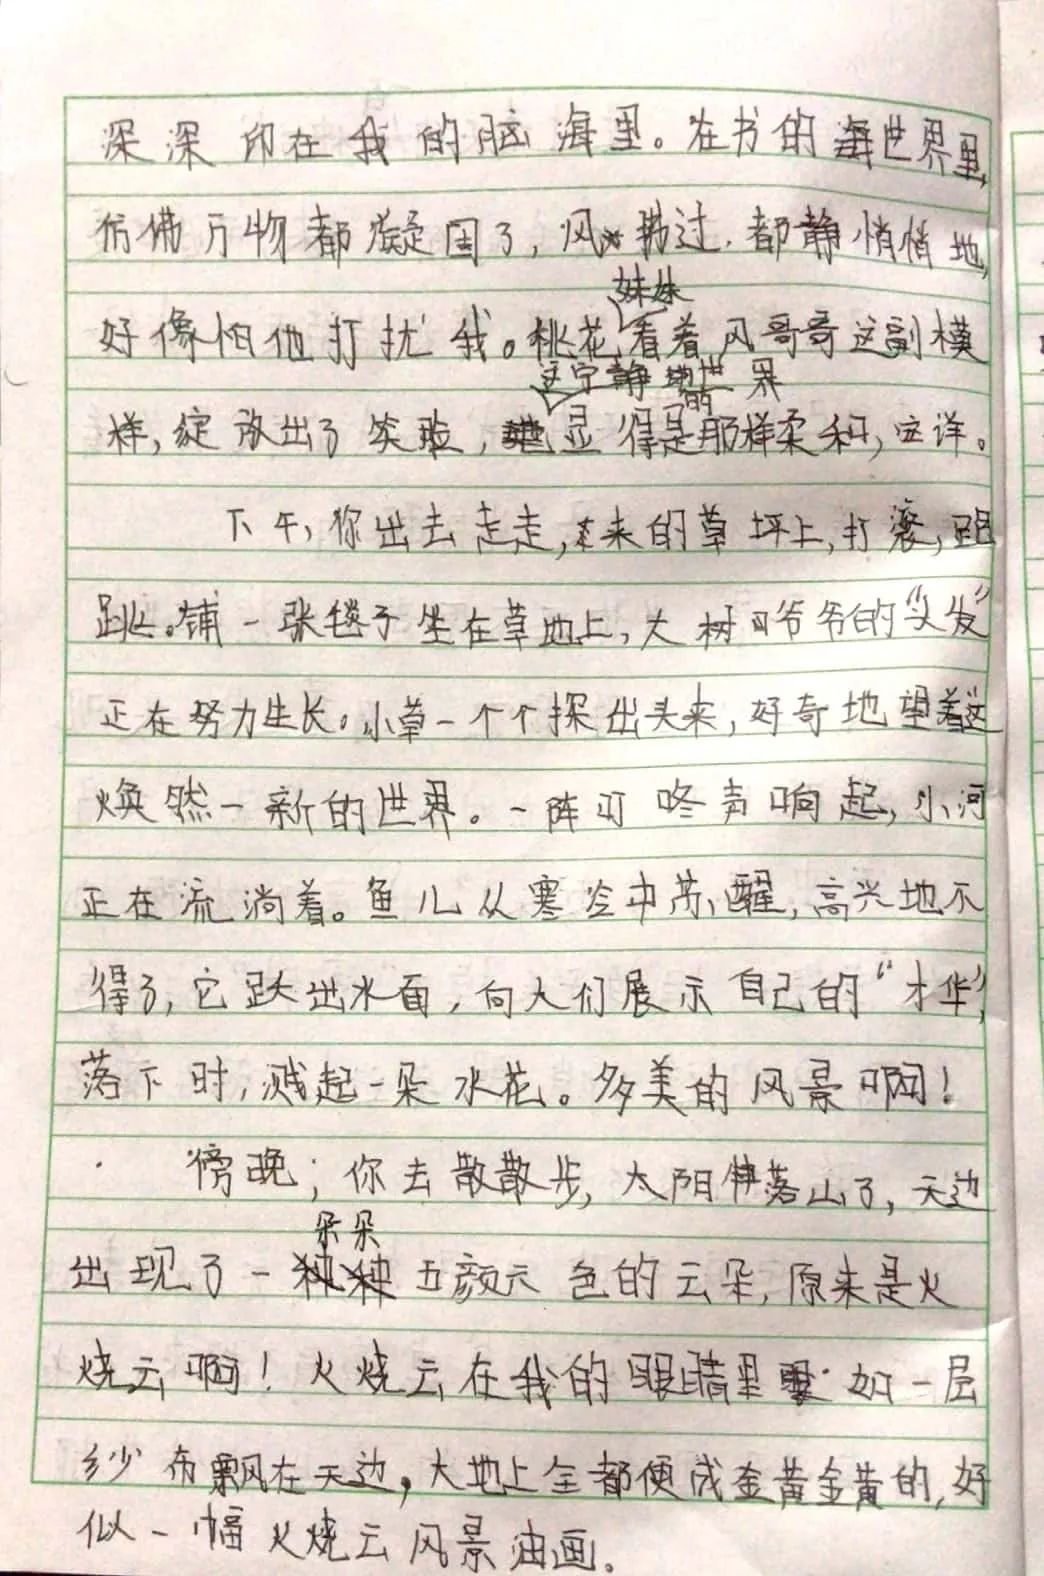 深深印在我的脑海里。在书的海世界里,
仿佛万物都凝固了,风拂过,都静悄悄地,
好像怕他打扰我。桃花妹妹看着风哥哥这副模
样,绽放出了笑脸,这宁静的世界显得是那样柔和,安详。
下午,你出去走走,来的草坪上,打滚,跑
跳。铺一张毯子坐在草地上,大树爷爷的“头发”
正在努力生长。小草一个个探出头来,好奇地望着这
焕然一新的世界。一阵叮咚声响起,小河
正在流淌着。鱼儿从寒冷中苏醒,高兴地不
得了,它跃出水面,向人们展示自己的“才华”,
落下时,溅起一朵水花。多美的风景啊!
傍晚,你去散散步,太阳落山了,天边
出现了一朵朵五颜六色的云朵,原来是火
烧云啊!火烧云在我的眼睛里如一层
纱布飘在天边,大地上全都便成金黄金黄的,好
似一幅火烧云风景油画。